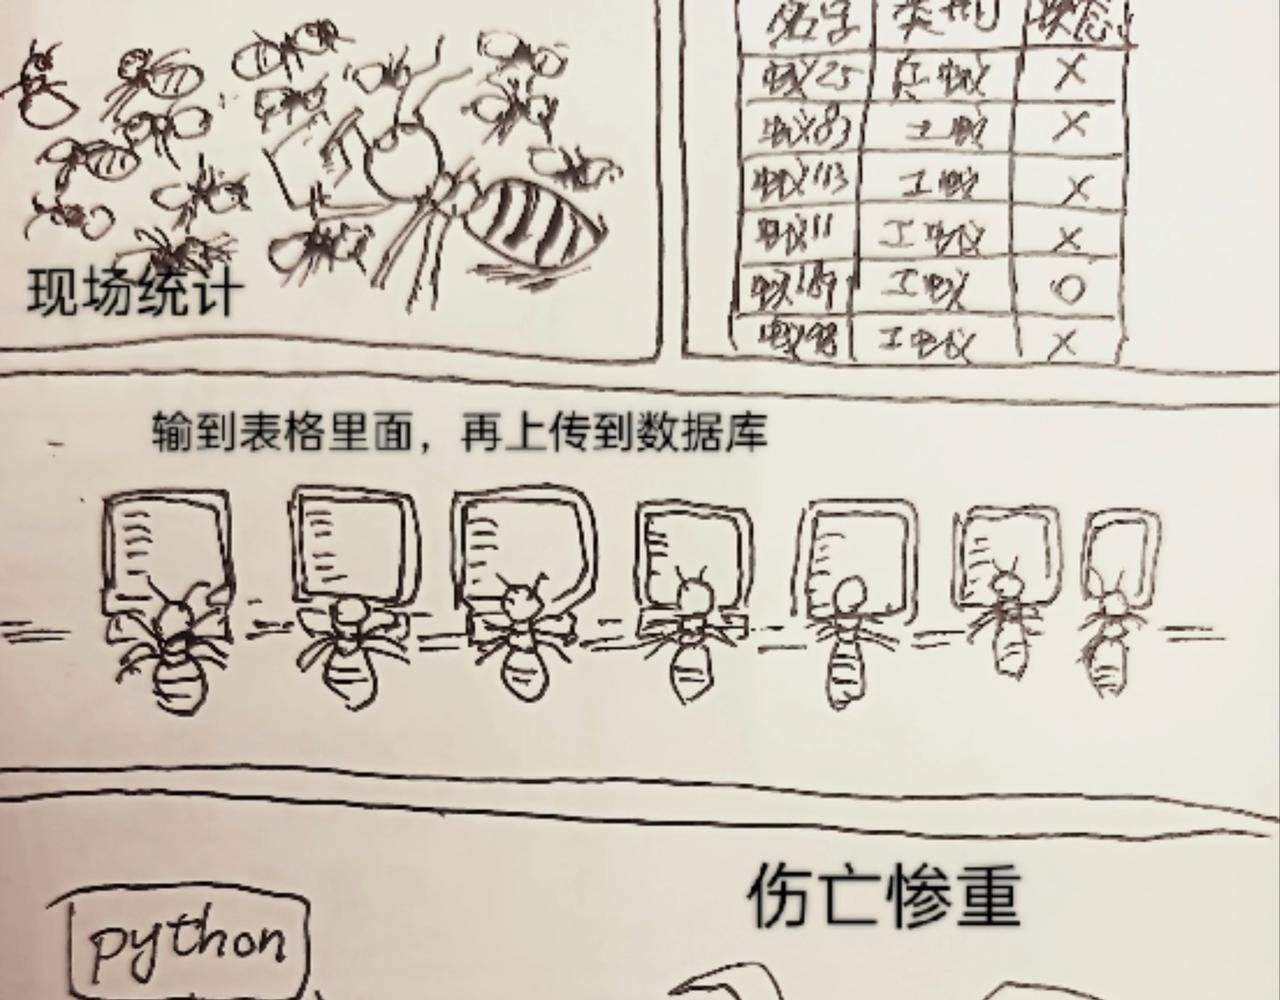 现场统计
名字 类型 状态
蚁25 兵蚁 X
蚁83 工蚁 X
蚁113 工蚁 X
蚁11 工蚁 X
蚁189 工蚁 O
蚁98 工蚁 X
输到表格里面，再上传到数据库
伤亡惨重
python